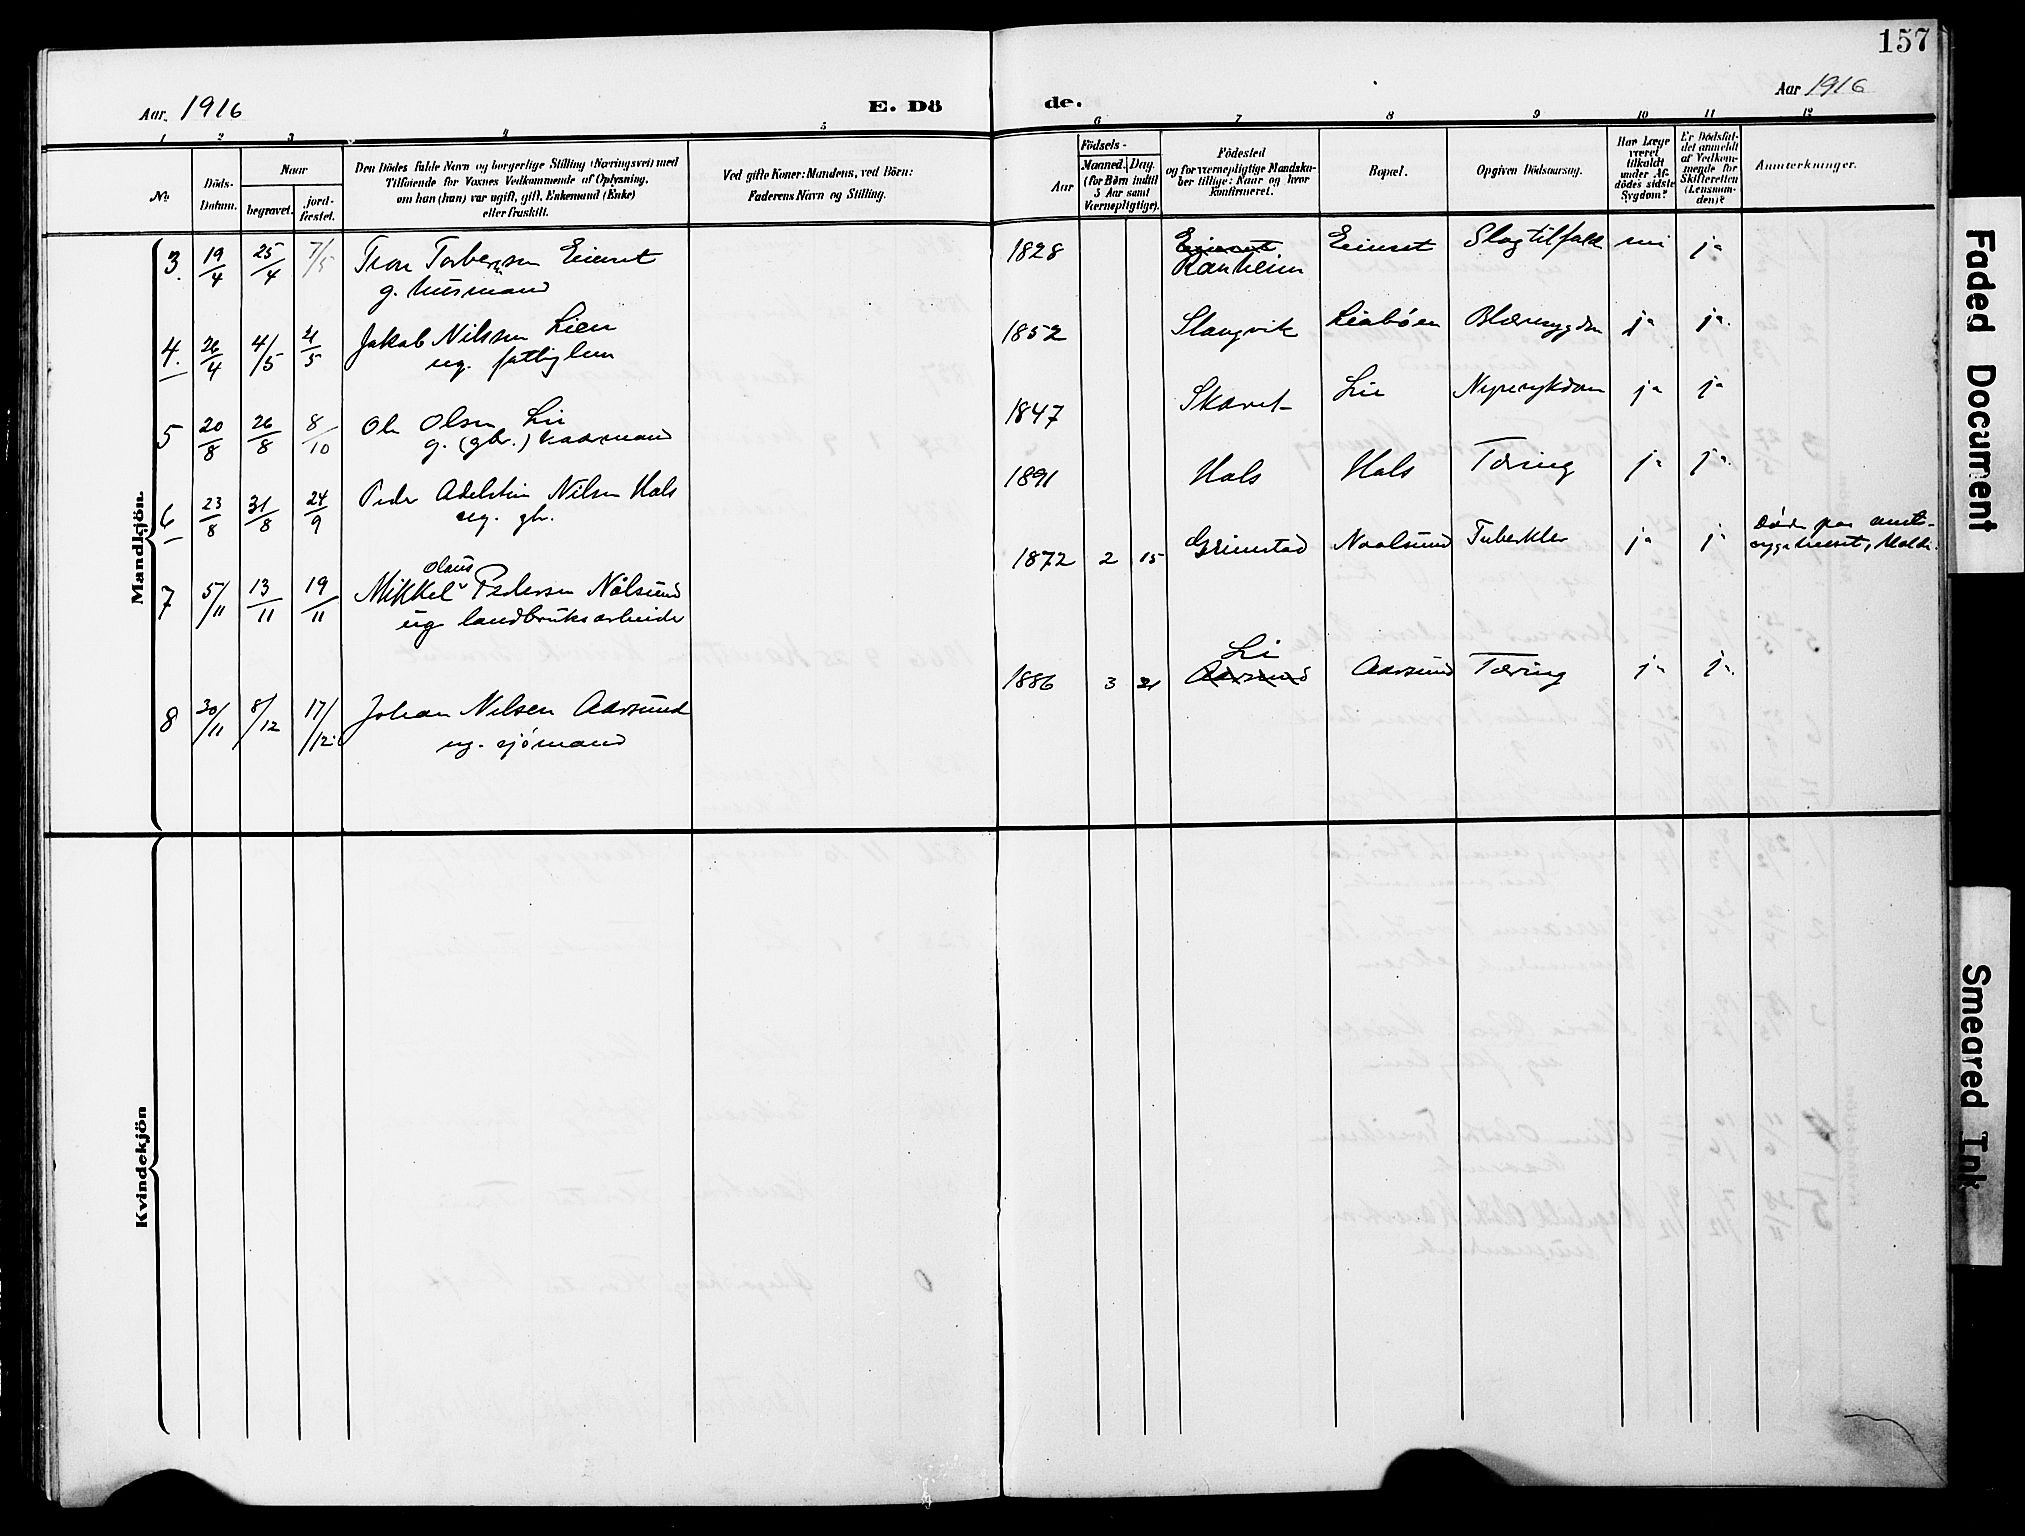 157
Aar. 1916
E. Dö
de.
Aar 1916
1 2 3 4 5
6 7 8 9 10 11 12
No.
Döds-
Datum.
Naar
begravet.
jord-
fæstet.
Den Dödes fulde Navn og borgerlige Stilling (Næringsvei) med
Tilföiende for Voxnes Vedkommende af Oplysning,
om han (hun) var ugift, gift, Enkemand (Enke)
eller fraskilt.
Ved gifte Koner: Mandens, ved Börn:
Faderens Navn og Stilling.
Födsels-
Aar
Maaned. Dag.
(for Börn indtil
5 Aar samt
Værnepligtige).
Födested
og for værnepligtige Mandska-
ber tillige: Naar og hvor
konfirmeret.
Bopæl.
Opgiven Dödsaarsag.
Har Læge
været
tilkaldt
under Af-
dödes sidste
Sygdom?
Er Dödsfal-
det anmeldt
af Vedkom-
mende for
Skifteretten
(Lensman-
den)?
Anmærkninger.
Mandkjön.
3. 19/4 25/4 7/5 Tron Torbersen Eiuset
g. husmand
1828 Eiuset Ranheim Eiuset Slagtilfald nei ja
4. 26/4 4/5 21/5 Jakob Nilssen Lien
ug. fattiglem
1852 Stangvik Liabøen Blæresygdom ja ja.
5 20/8 26/8 8/10 Ole Olsen Lie
g. (gbr.) kaarmand
1847 Skaret Lie Nyresykdom ja ja
6 23/8 31/8 24/9 Peder Adelstein Nilsen Hals
ug. gbr.
1891 Hals Hals Tæring ja ja.
7 5/11 13/11 19/11 Mikkel Olaus Pedersen Nålsund
ug landbruksarbeider
1872 2 15 Grimstad Naalsund Tuberkler ja ja Døde paa amts-
sygehuset, Molde.
8 30/11 8/12 17/12 Johan Nilsen Aarsund
ug. sjømand
1886 3 21 Li Aarsund Aarsund Tæring ja ja.
Kvindekjön
Faded Document
Smeared Ink